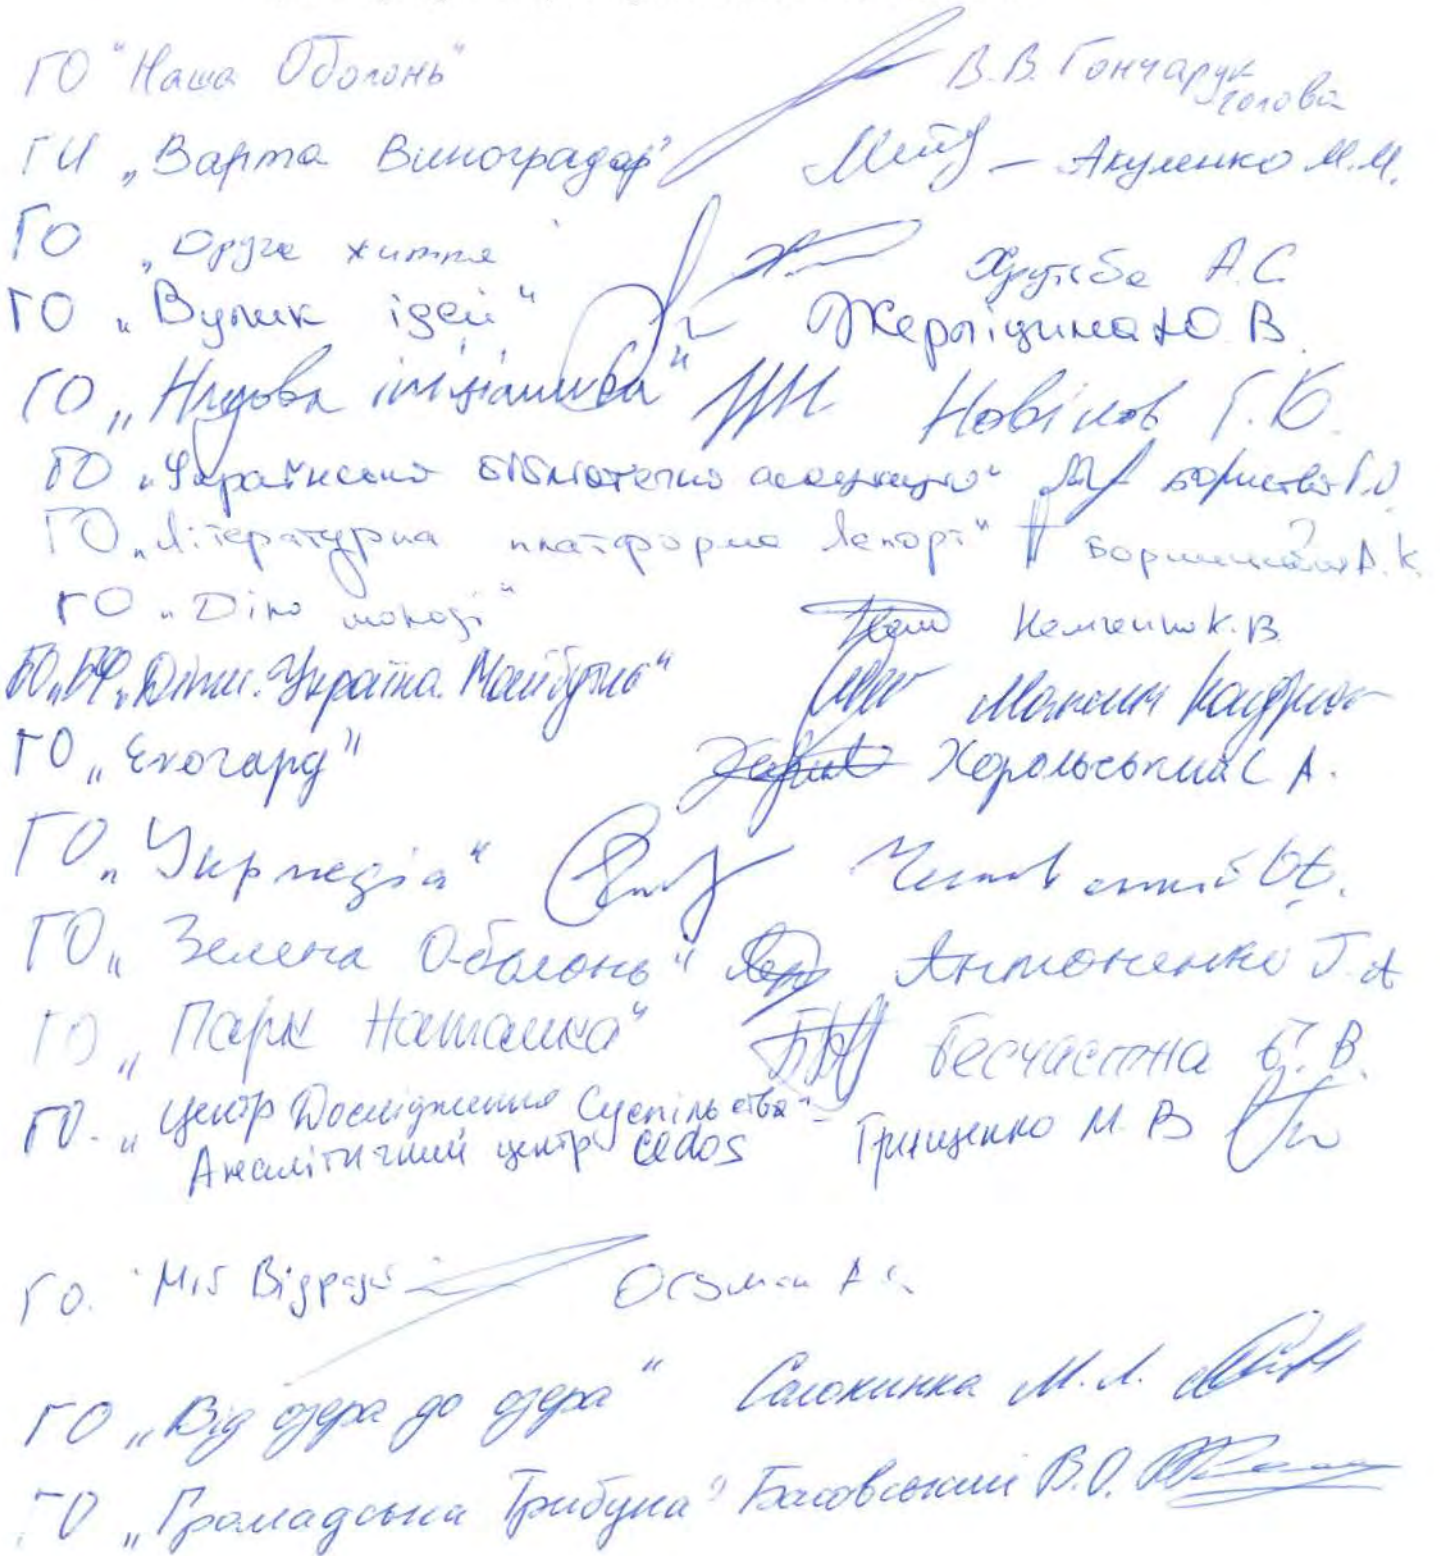 ГО "Наша Оболонь" В.В. Гончарук
голова
ГИ „Варта Виноградар" — Акуленко М.М.
ГО „Друге життя" Хрутьба А.С.
ГО „Вулик ідей" Ю.В.
ГО „Нудова ініціатива" Новіков Г.К.
ГО „Українська бібліотечна асоціація"
ГО „Літературна платформа Лепорт" А.К.
ГО „Діно молоді" Немченко К.В.
БО „БФ „Діти. Україна. Майбутнє" Максим
ГО „Екогард" Хорольський С.А.
ГО „Укрмедіа"
ГО „Зелена Оболонь" Антоненко Г.А
ГО „Парк Наталка" Бесчастна Є.В.
ГО. „Центр Дослідження Суспільства" -
Аналітичний центр Cedos Грищенко М.В
ГО. "Мій Відрадн
ГО „Від озера до озера" Салокинка М.Л.
ГО „Громадська Трибуна" Басовський В.О.